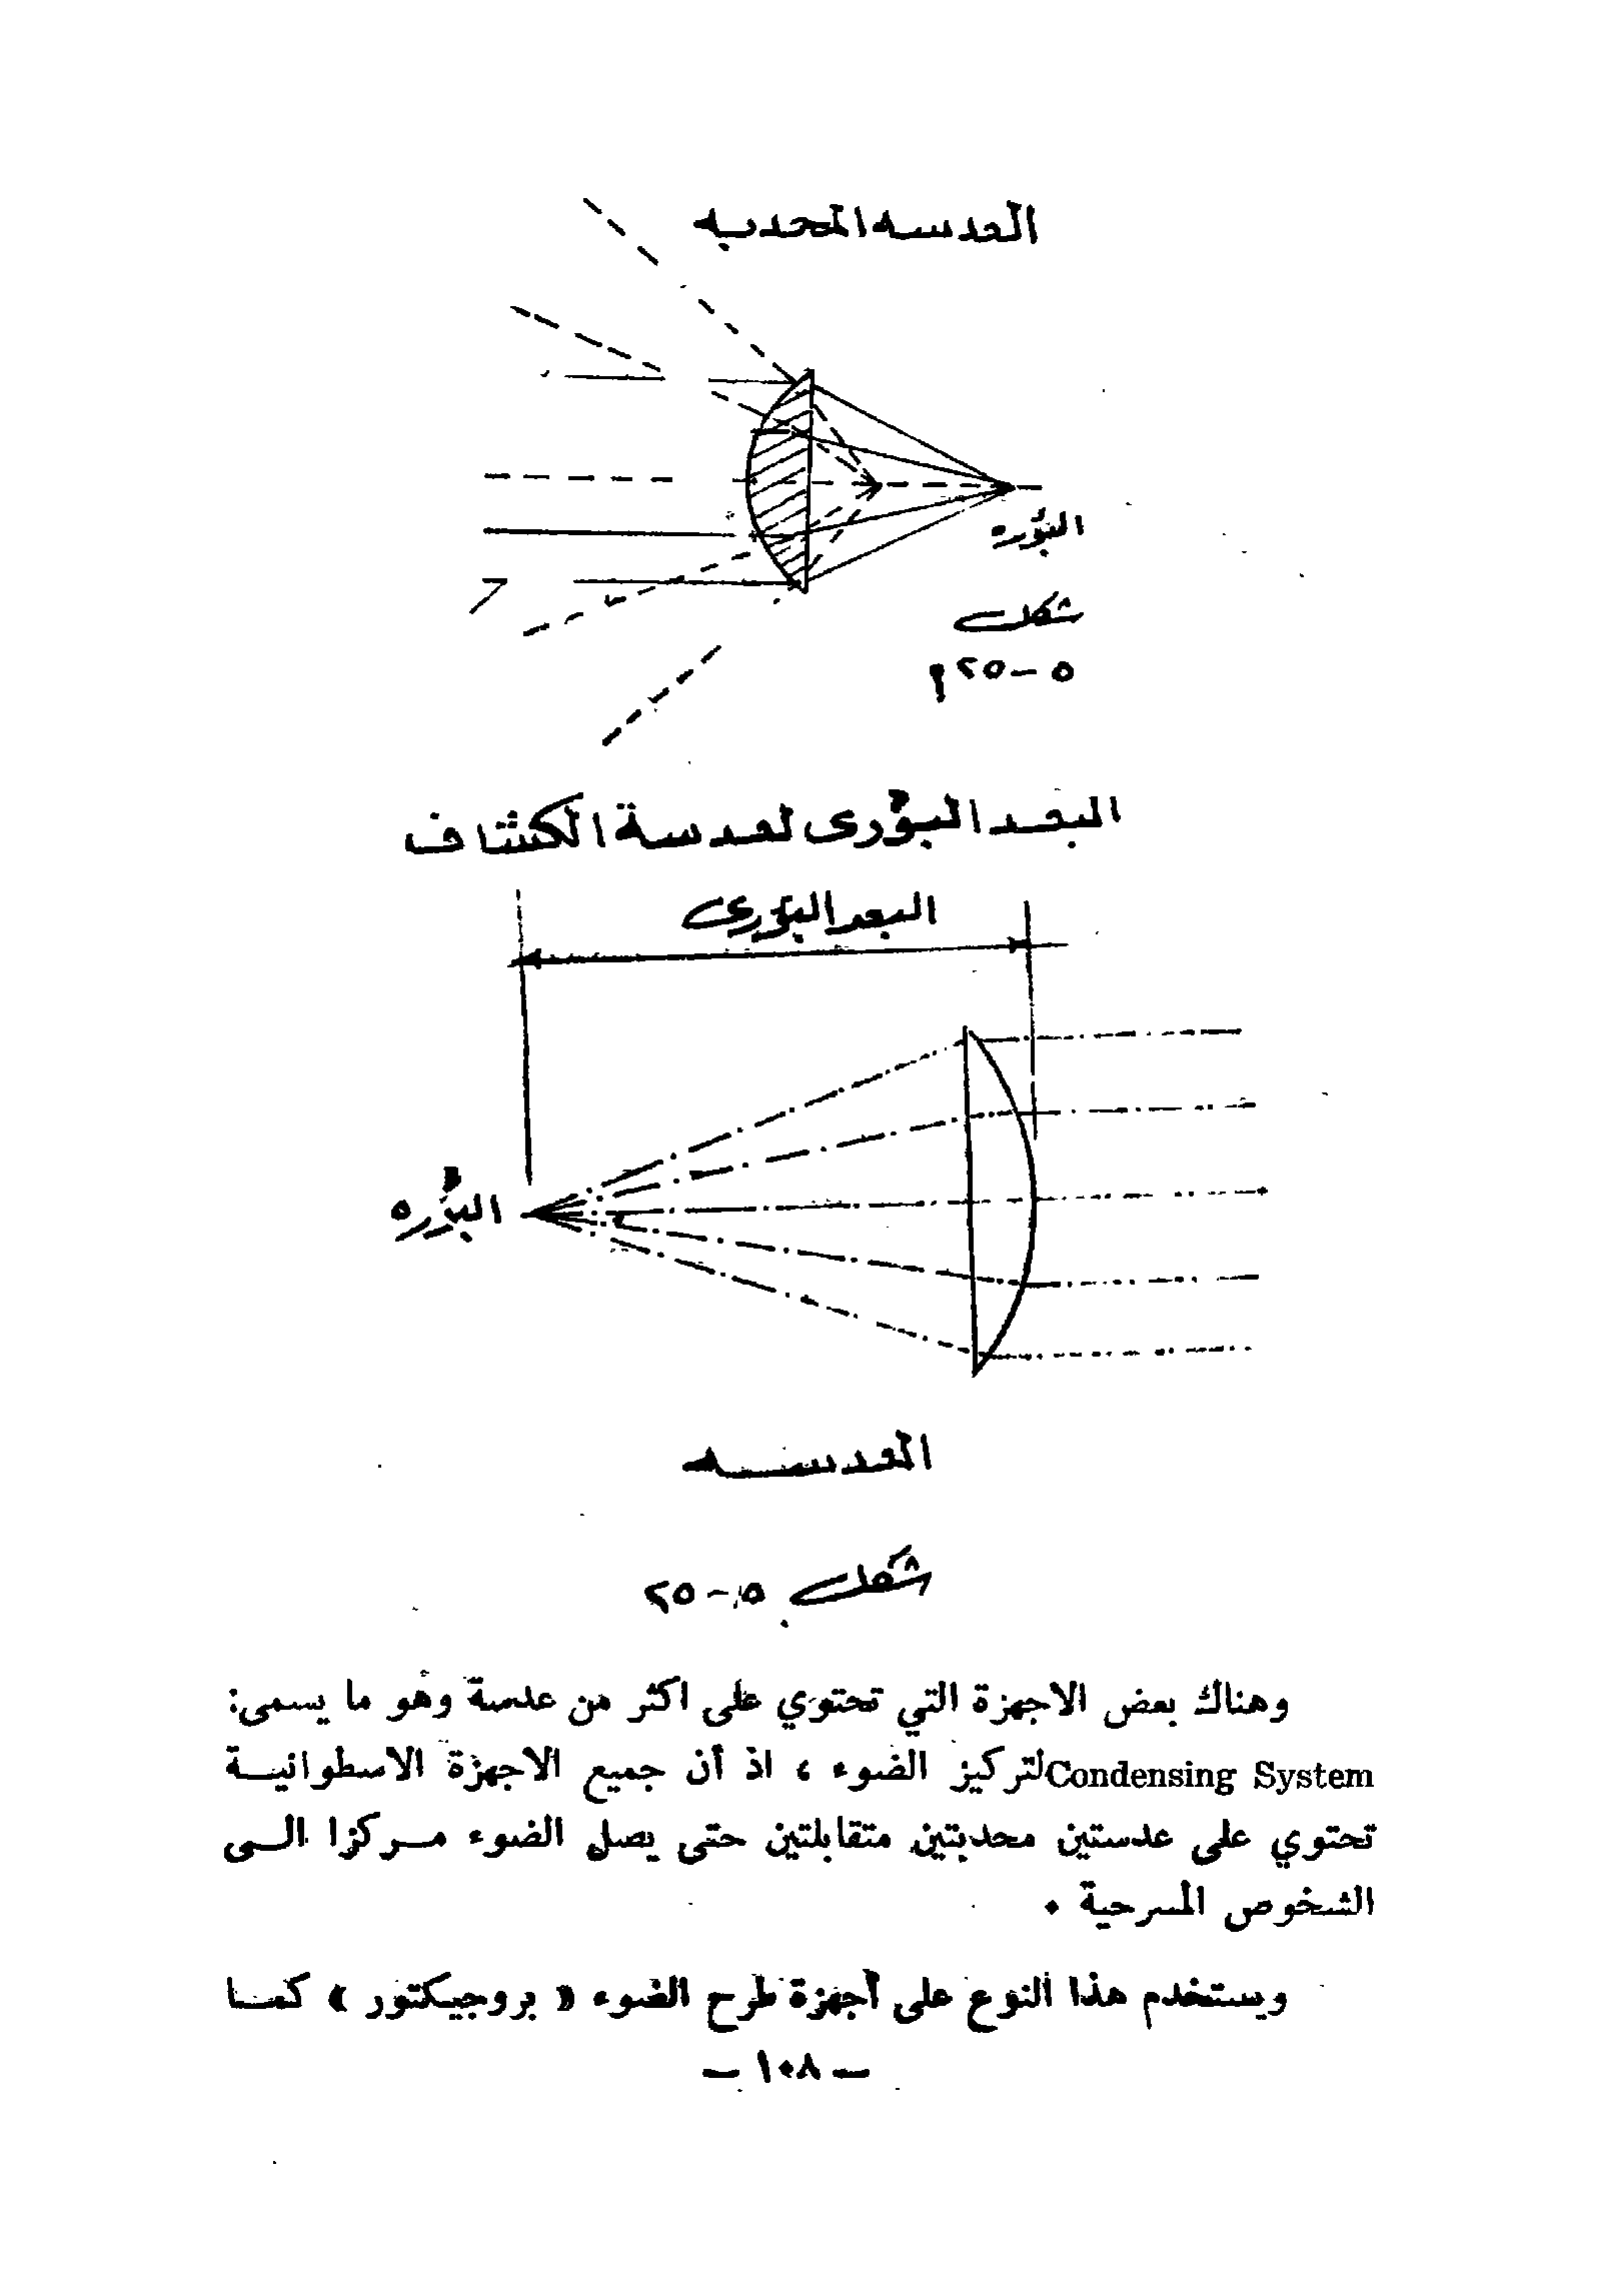 العدسه المحدبه
البؤره
شكل
٥ - ٢٥ م
البعد البؤرى لعدسة الكشاف
البعد البؤرى
البؤره
العدسه
شكل ٥ - ٢٥
وهناك بعض الاجهزة التي تحتوي على اكثر من عدسة وهو ما يسمى:
Condensing System لتركيز الضوء ، اذ أن جميع الاجهزة الاسطوانية
تحتوي على عدستين محدبتين متقابلتين حتى يصل الضوء مركزا الى
الشخوص المسرحية .
ويستخدم هذا النوع على أجهزة طرح الضوء « بروجيكتور » كما
– ١٠٨ –